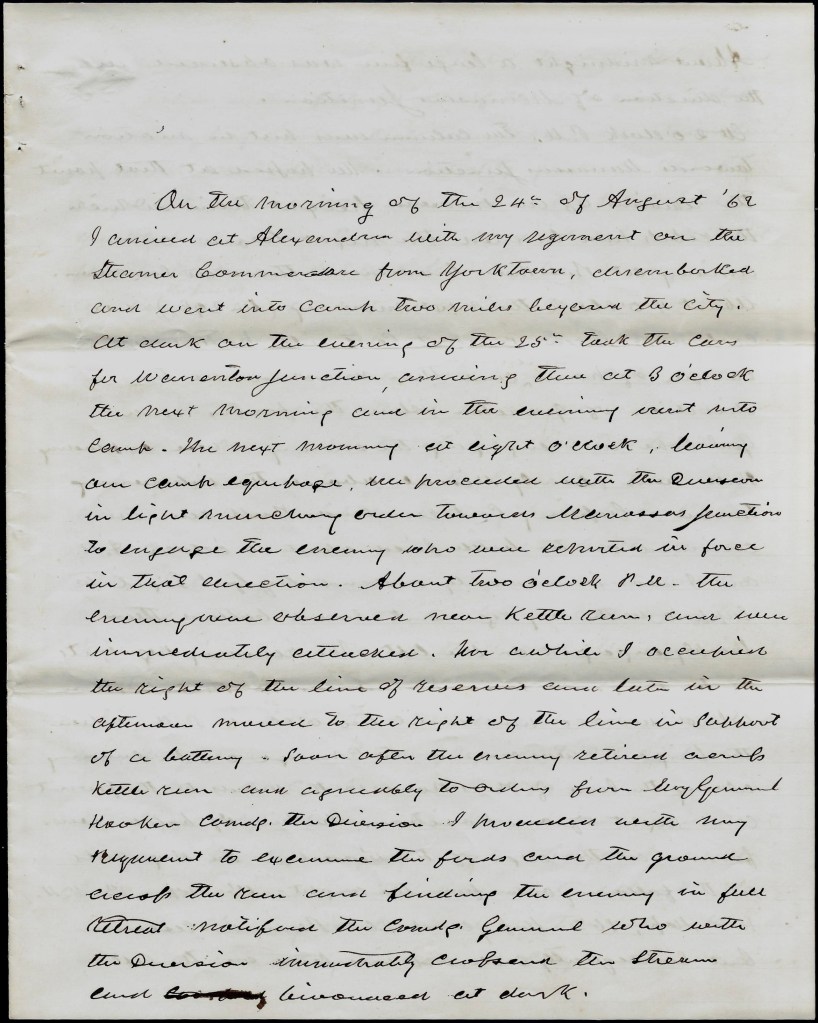 On the morning of the 24th of August '62
I arrived at Alexandria with my regiment on the
Steamer Commodore from Yorktown, disembarked
and went into camp two miles beyond the city.
At dark on the evening of the 25th took the cars
for Warrenton Junction, arriving there at 3 o'clock
the next morning and in the evening went into
Camp. The next morning at eight o'clock, leaving
our camp equipage, we proceeded with the Division
in light marching order towards Manassas Junction
to engage the enemy who were reported in force
in that direction. About two o'clock P.M. the
enemy were observed near Kettle run, and were
immediately attacked. For awhile I occupied
the right of the line of reserves and late in the
afternoon moved to the right of the line in support
of a battery. Soon after the enemy retired across
Kettle run and agreeably to orders from Maj General
Hooker Comdg. the Division I proceeded with my
regiment to examine the fords and the ground
across the run and finding the enemy in full
retreat notified the Comdg. General who with
the Division immediately crossed the Stream
and bivouaced at dark.